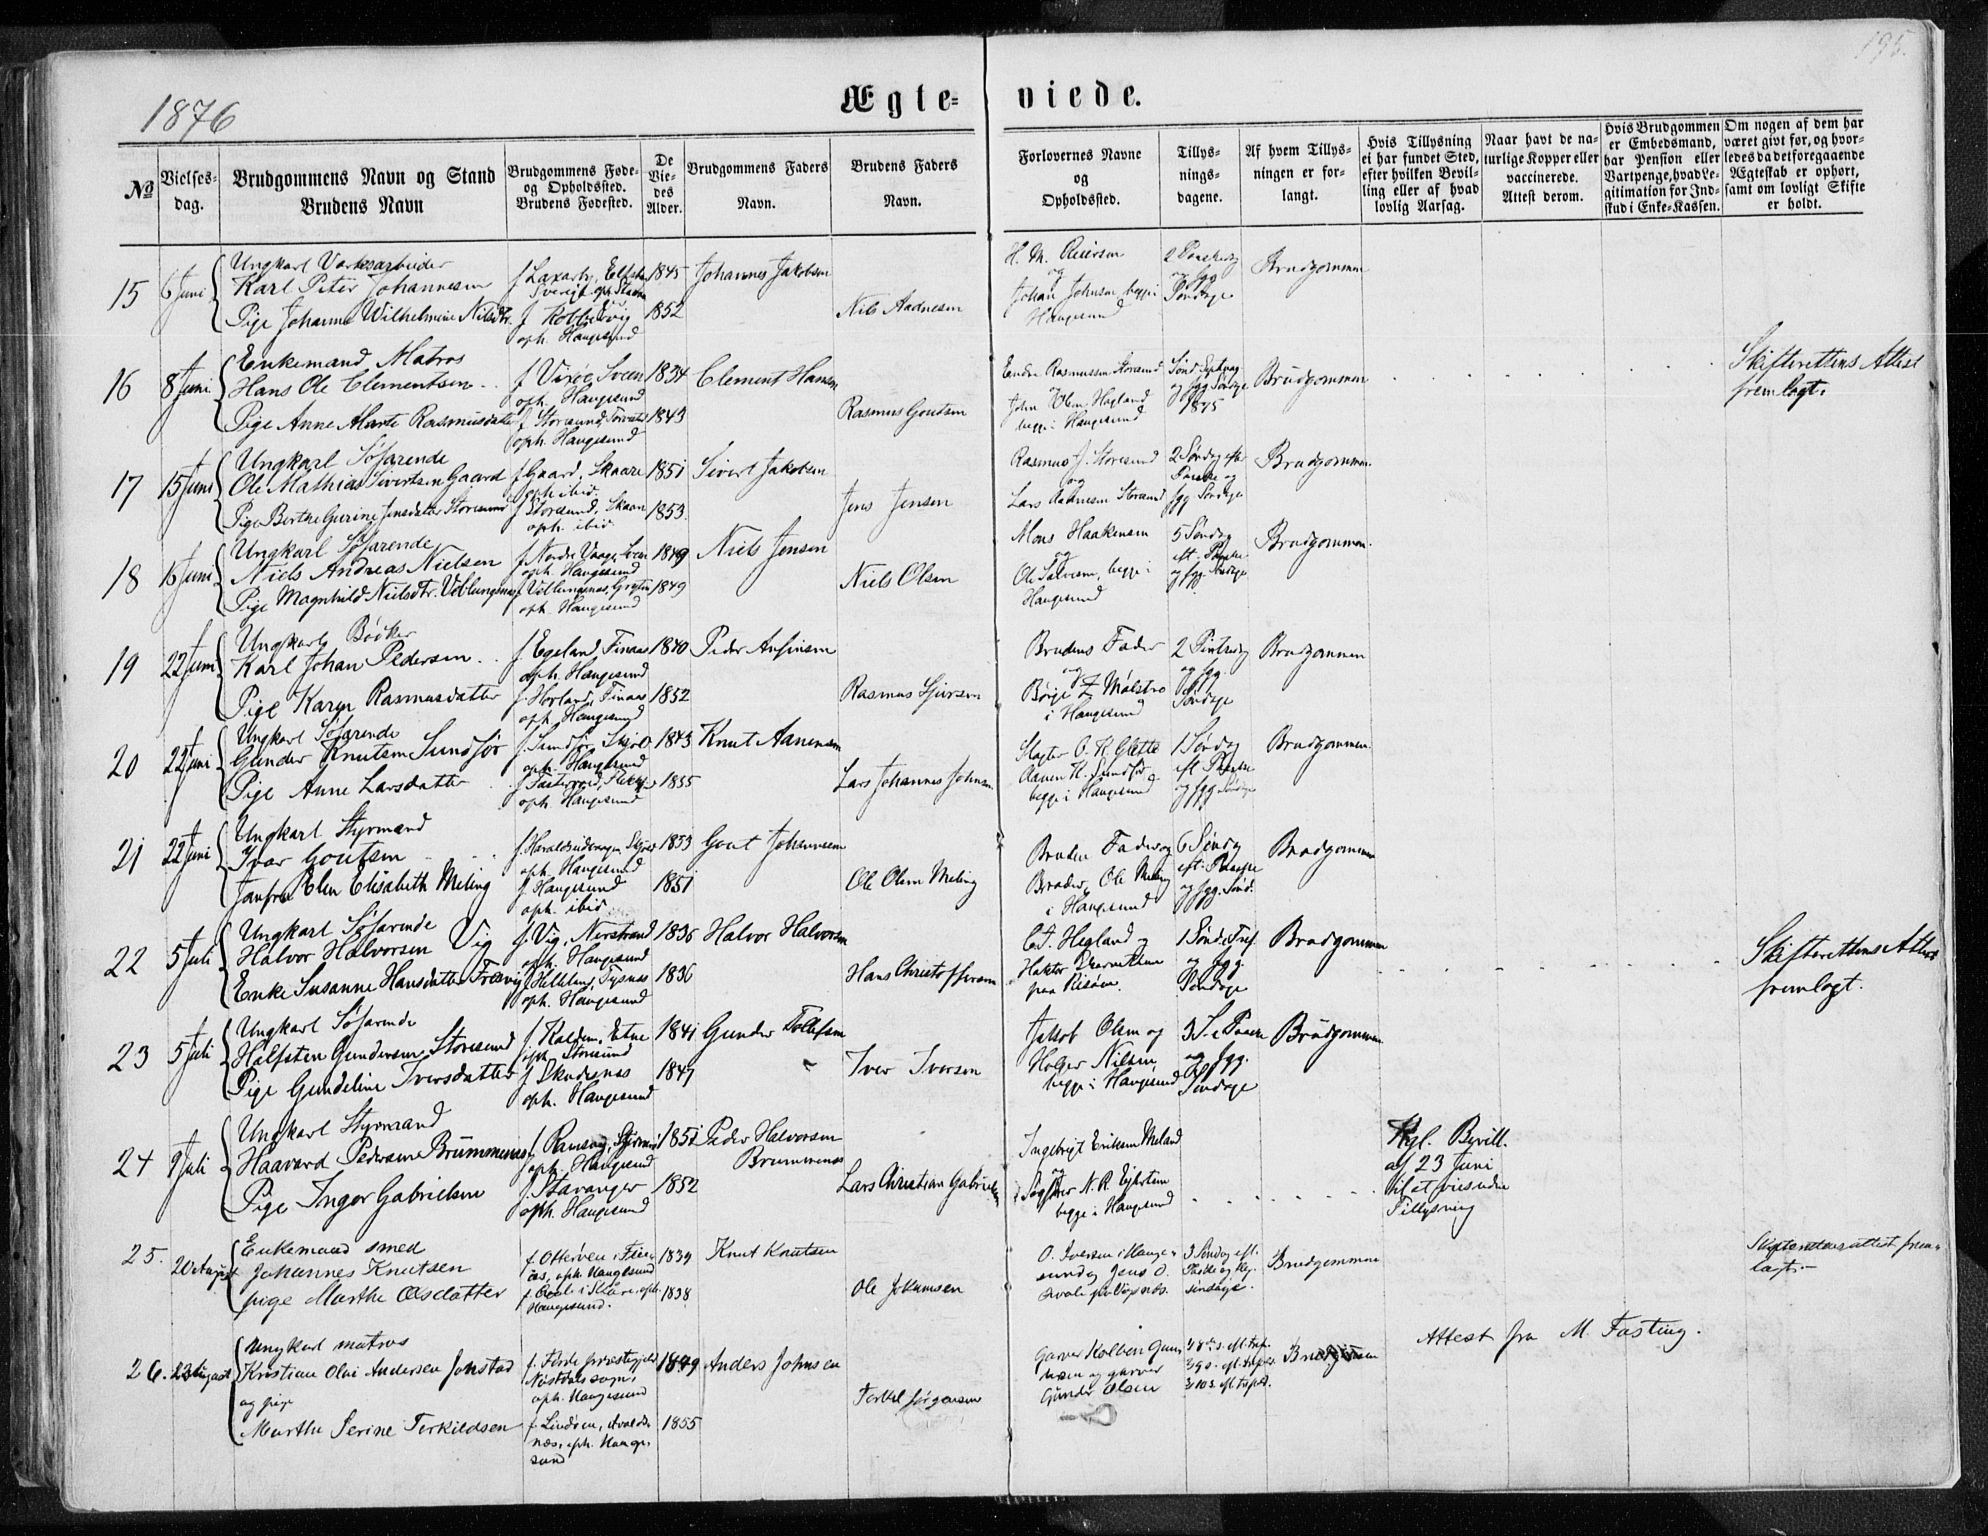 195.
1876
Ægte= viede.
No
Vielses-dag.
Brudgommens Navn og Stand
Brudens Navn
Brudgommens Føde- og Opholdssted.
Brudens Fødested.
De Vie-des Alder.
Brudgommens Faders Navn.
Brudens Faders Navn.
Forlovernes Navne og Opholdssted.
Tillys-nings-dagene.
Af hvem Tillys-ningen er for-langt.
Hvis Tillysning ei har fundet Sted, efter hvilken Bevil-ling eller af hvad lovlig Aarsag.
Naar havt de na-turlige Kopper eller vaccinerede. Attest derom.
Hvis Brudgommen er Embedsmand, har Pension eller Vartpenge, hvad Le-gitimation for Ind-skud i Enke-Kassen.
Om nogen af dem har været givt før, og hvor-ledes da det foregaaende Ægteskab er ophørt, samt om lovligt Skifte er holdt.
15 6 Juni
Ungkarl
Karl Peter Johannesen
Pige Johanne Wilhelmine Nilsdtr.
oph. Haugesund
1845
1852
Johannes Jakobsen
Nils Aadnesen
H. M. Reiersen
og
Johan Johnsen, begge i
Haugesund
og fgg
Søndage
Brudgommen
16 8 Juni
Enkemand Matros
Hans Ole Clementsen
Pige Anne Marte Rasmusdatter
oph. Haugesund
f Storesund, Torvastad
oph. Haugesund
1834
1843
Clement Hansen
Rasmus Goutsen
Endre Rasmussen Storesund
begge i Haugesund
og fgg Søndage
1875
Brudgommen
Skifterettens Attest
fremlagt.
17 15 Juni
Ungkarl Søfarende
Ole Mathias Sivertsen Gaard
Pige Berthe Gurine Jensdatter Storesund
f Gaard, Skaare
oph ibid.
f Storesund, Skaare
oph. ibid
1851
1853
Sivert Jakobsen
Jens Jensen
Rasmus J. Storesund
og
Lars Aadnesen Storesund
2 Søndag eft
Paaske og
fgg Søndage
Brudgommen.
18 16 Juni
Ungkarl Søfarende
Niels Andreas Nielsen
Pige Magnhild Nielsdtr. Veblungsnæs
f Nordre Vaage, Sveen
oph. Haugesund
f Veblungsnæs, Grytten
oph. Haugesund
1849
1849
Niels Jensen
Niels Olsen
Mons Haakensen
og
Ole Salvesen, begge i
Haugesund
5 Søndag
eft. Paaske
og fgg. Søndage
Brudgommen.
19 22 Juni
Ungkarl Bødker
Karl Johan Pedersen
Pige Karen Rasmusdatter
f. Egeland, Finaas
oph. Haugesund
f Hovland, Finaas
oph. Haugesund
1840
1852
Peder Ansinsen
Rasmus Sjursen
Brudens Fader
og
Børge Z Mølstre
i Haugesund
2 Pintsedag
og fgg.
Søndage
Brudgommen
20 22 Juni
Ungkarl Søfarende
Gunder Knutsen Sundfør
Pige Anne Larsdatter
oph. Haugesund
oph. Haugesund
1843
1855
Knut Aanensen
Lars Johannes Johnsen
Aanen K. Sundfør
begge i Haugesund
1 Søndag
eft Paaske
og fgg Søndage
Brudgommen.
21 22 Juni
Ungkarl Styrmand
Ivar Goutsen
Jomfru Elen Elisabeth Meling
oph. Haugesund
f Haugesund
oph. ibid
1853
1851
Gout Johannesen
Ole Olsen Meling
Brudens Fader og
Broder, Ole Meling
i Haugesund
6 Søndag
eft. Paaske
og fgg. Sønd.
Brudgommen
22 5 Juli
Ungkarl Søfarende
Halvor Halvorsen Vig
Enke Susanne Hansdatter Træavig
f. Vig, Nerstrand
oph. Haugesund
f Helleland, Tysnæs
oph. Haugesund
1836
1836
Halvor Halvorsen
Hans Christoffersen
paa Risøen.
1 Sønd. e Tref.
og fgg.
Søndage
Brudgommen
Skifterettens Attest
fremlagt.
23 5 Juli
Ungkarl Søfarende
Halfsten Gundersen Storesund
Pige Gundeline Iversdatter
oph. Storesund
f Skudesnæs
oph. Haugesund
1841
1847
Gunder Tollefsen
Iver Iversen
Jakob Olsen og
Holger Nilsen,
begge i Haugesund
og fgg.
Søndage
Brudgommen
24 9 Juli
Ungkarl Styrmand
Haavard Pedersen Brummenæs
Pige Inger Gabrielsen
oph. Haugesund
f. Stavanger
oph. Haugesund
1851
1852
Peder Halvorsen
Brummenæs
Lars Christian Gabrielsen
Ingebrigt Eriksen Meland
og
begge i Haugesund
Kgl. Bevill.
af 23 Juni
til at vies uden
Tillysning
25. 20 August
Enkemand smed
Johannes Knutsen
pige Marthe Olsdatter
f. Otterøen i Fin-
aas, oph. Haugesund
Haugesund.
1839
1838
Knut Knutsen
Ole Jokumsen
O. Iversen i Hauge-
sund og Jens O.
3 Søndag eft.
Paaske og flg.
søndage.
Brudgommen
Skifterettens attest frem-
lagt.
26. 23 August
Ungkarl matros
Kristian Olai Andersen Jonstad
og pige
Marthe Serine Terkildsen
f. Førde præstegjeld
Nøstdals sogn,
oph. Haugesund
f. Lindøen, Avalds-
næs, oph. Hauge-
sund
1849
1855
Anders Johnsen
Terkel Jørgensen
Garver Kolben Gun-
dersen og garver
Gunder Olsen
Brudgommen
Attest fra M. Fasting.